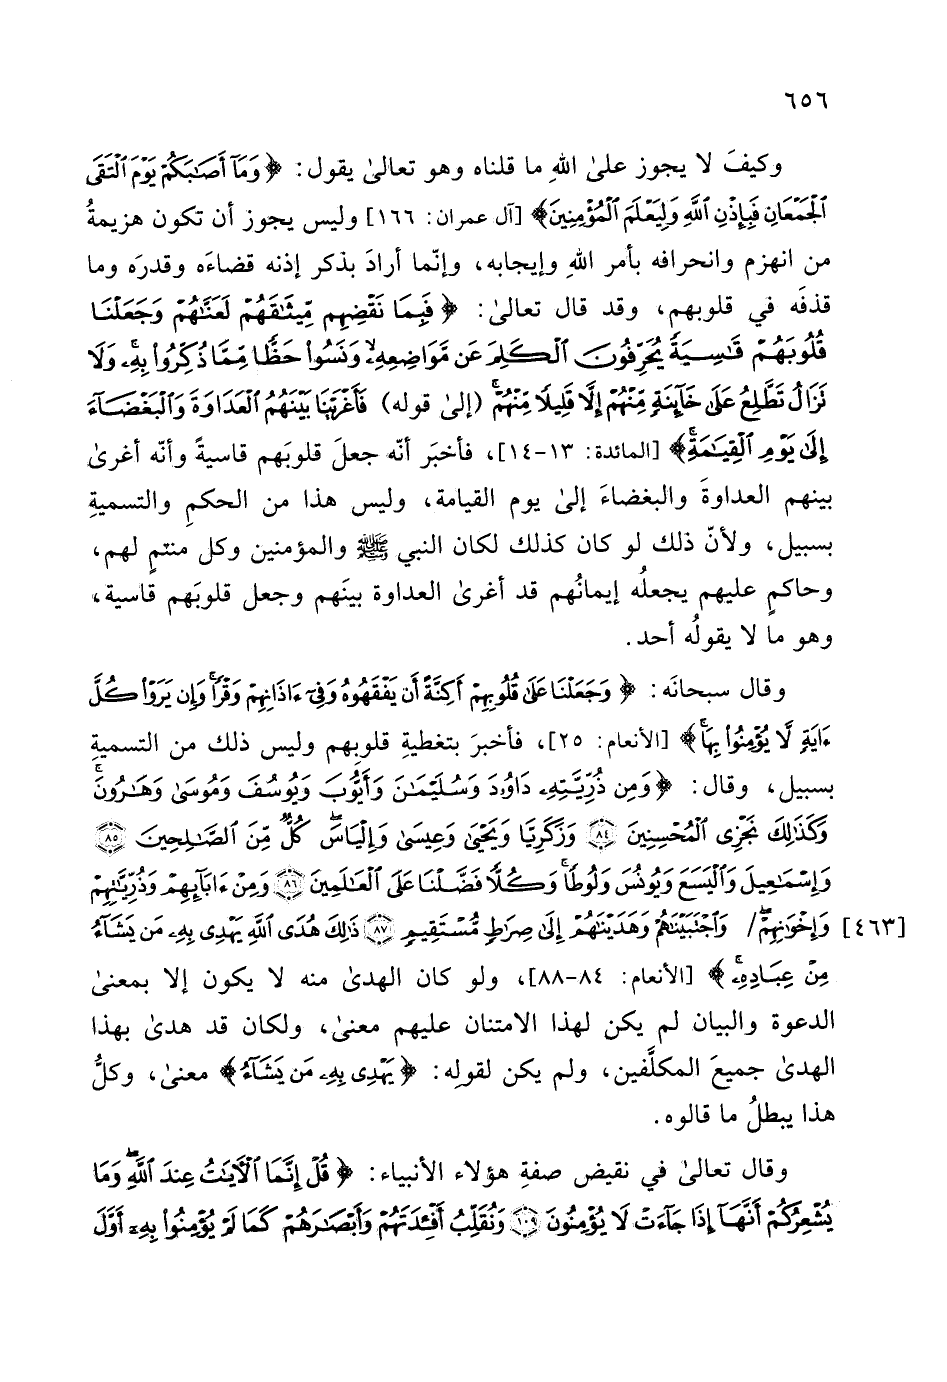 ٦٥٦
وكيفَ لا يجوز علىٰ اللهِ ما قلناه وهو تعالىٰ يقول: ﴿وَمَآ أَصَـٰبَكُمْ يَوْمَ ٱلْتَقَى
ٱلْجَمْعَانِ فَبِإِذْنِ ٱللَّهِ وَلِيَعْلَمَ ٱلْمُؤْمِنِينَ﴾ [آل عمران: ١٦٦] وليس يجوز أن تكون هزيمةُ
من انهزم وانحرافه بأمر اللهِ وإيجابه، وإنّما أرادَ بذكر إذنه قضاءَه وقدرَه وما
قذفَه في قلوبهم، وقد قال تعالىٰ: ﴿فَبِمَا نَقْضِهِم مِّيثَـٰقَهُمْ لَعَنَّـٰهُمْ وَجَعَلْنَا
قُلُوبَهُمْ قَـٰسِيَةً يُحَرِّفُونَ ٱلْكَلِمَ عَن مَّوَاضِعِهِۦ وَنَسُوا۟ حَظًّا مِّمَّا ذُكِّرُوا۟ بِهِۦۚ وَلَا
تَزَالُ تَطَّلِعُ عَلَىٰ خَآئِنَةٍ مِّنْهُمْ إِلَّا قَلِيلًا مِّنْهُمْۚ (إلىٰ قوله) فَأَغْرَيْنَا بَيْنَهُمُ ٱلْعَدَاوَةَ وَٱلْبَغْضَآءَ
إِلَىٰ يَوْمِ ٱلْقِيَـٰمَةِۚ﴾ [المائدة: ١٣-١٤]، فأخبَر أنّه جعلَ قلوبَهم قاسيةً وأنّه أغرىٰ
بينهم العداوةَ والبغضاءَ إلىٰ يوم القيامة، وليس هذا من الحكمِ والتسميةِ
بسبيل، ولأنّ ذلك لو كان كذلك لكان النبي ﷺ والمؤمنين وكل منتمٍ لهم،
وحاكمٍ عليهم يجعلُه إيمانُهم قد أغرىٰ العداوة بينَهم وجعل قلوبَهم قاسية،
وهو ما لا يقولُه أحد.
وقال سبحانَه: ﴿وَجَعَلْنَا عَلَىٰ قُلُوبِهِمْ أَكِنَّةً أَن يَفْقَهُوهُ وَفِىٓ ءَاذَانِهِمْ وَقْرًاۚ وَإِن يَرَوْا۟ كُلَّ
ءَايَةٍ لَّا يُؤْمِنُوا۟ بِهَاۚ﴾ [الأنعام: ٢٥]، فأخبرَ بتغطيةِ قلوبهم وليس ذلك من التسميةِ
بسبيل، وقال: ﴿وَمِن ذُرِّيَّتِهِۦ دَاوُۥدَ وَسُلَيْمَـٰنَ وَأَيُّوبَ وَيُوسُفَ وَمُوسَىٰ وَهَـٰرُونَۚ
وَكَذَٰلِكَ نَجْزِى ٱلْمُحْسِنِينَ ٨٤ وَزَكَرِيَّا وَيَحْيَىٰ وَعِيسَىٰ وَإِلْيَاسَۖ كُلٌّ مِّنَ ٱلصَّـٰلِحِينَ ٨٥
وَإِسْمَـٰعِيلَ وَٱلْيَسَعَ وَيُونُسَ وَلُوطًاۚ وَكُلًّا فَضَّلْنَا عَلَى ٱلْعَـٰلَمِينَ ٨٦ وَمِنْ ءَابَآئِهِمْ وَذُرِّيَّـٰتِهِمْ
وَإِخْوَٰنِهِمْۖ / وَٱجْتَبَيْنَـٰهُمْ وَهَدَيْنَـٰهُمْ إِلَىٰ صِرَٰطٍ مُّسْتَقِيمٍ ٨٧ ذَٰلِكَ هُدَى ٱللَّهِ يَهْدِى بِهِۦ مَن يَشَآءُ [٤٦٣]
مِنْ عِبَادِهِۦۚ﴾ [الأنعام: ٨٤-٨٨]، ولو كان الهدىٰ منه لا يكون إلا بمعنىٰ
الدعوة والبيان لم يكن لهذا الامتنان عليهم معنىٰ، ولكان قد هدىٰ بهذا
الهدىٰ جميعَ المكلَّفين، ولم يكن لقولِه: ﴿يَهْدِى بِهِۦ مَن يَشَآءُ﴾ معنىٰ، وكلُّ
هذا يبطلُ ما قالوه.
وقال تعالىٰ في نقيض صفةِ هؤلاء الأنبياء: ﴿قُلْ إِنَّمَا ٱلْـَٔايَـٰتُ عِندَ ٱللَّهِۖ وَمَا
يُشْعِرُكُمْ أَنَّهَآ إِذَا جَآءَتْ لَا يُؤْمِنُونَ ١٠٩ وَنُقَلِّبُ أَفْـِٔدَتَهُمْ وَأَبْصَـٰرَهُمْ كَمَا لَمْ يُؤْمِنُوا۟ بِهِۦٓ أَوَّلَ